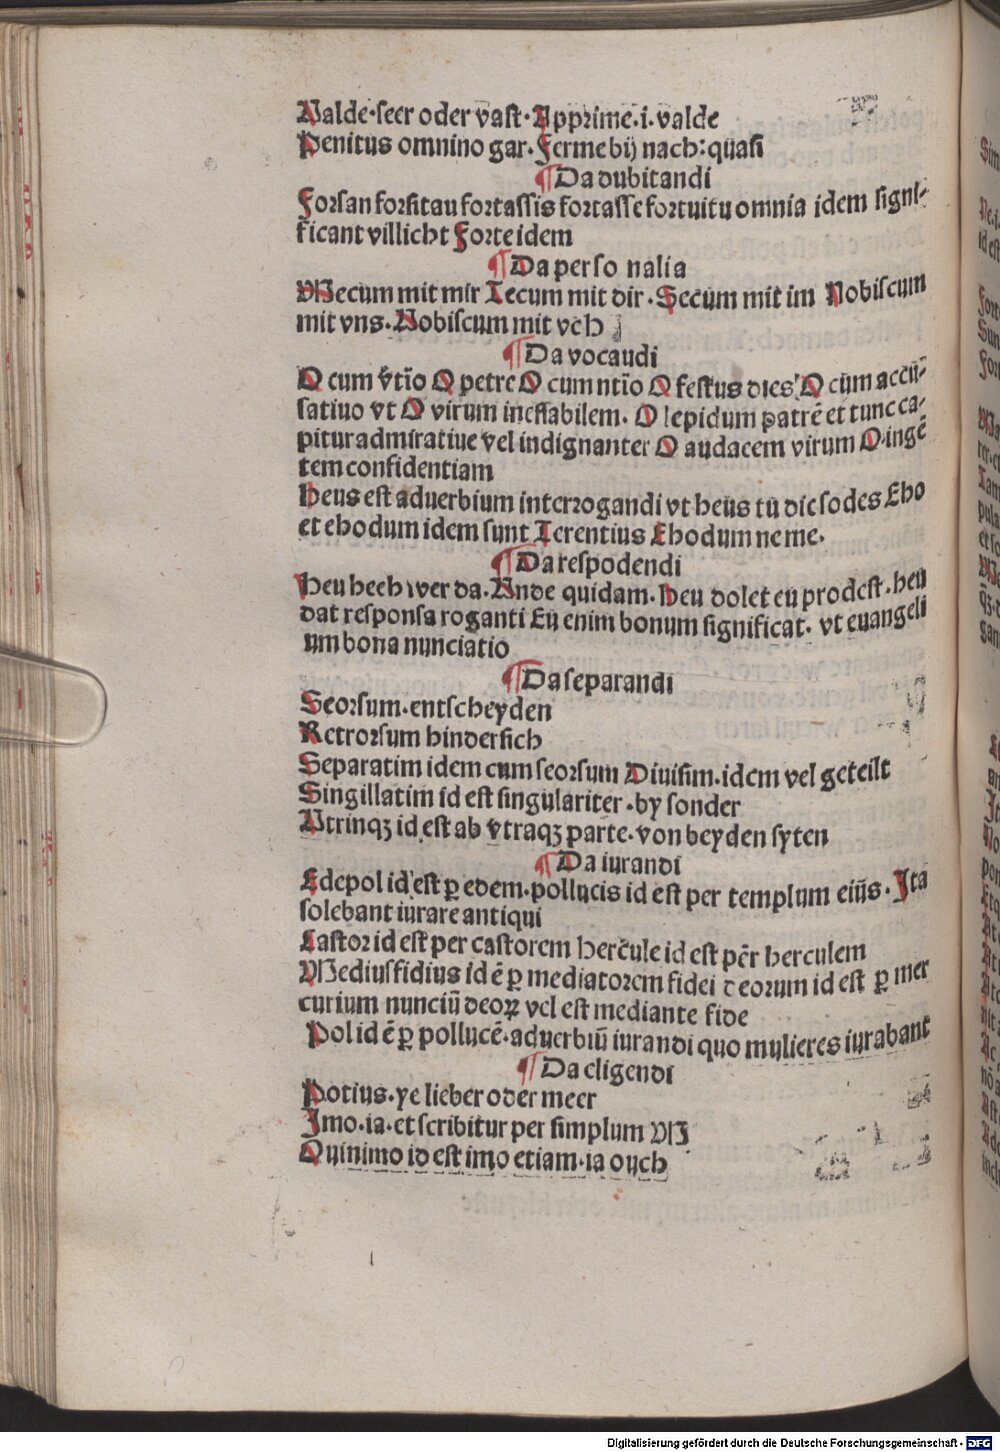 Valde·seer oder vast·Apprime·i·valde
Penitus omnino gar·Ferme bij nach: quasi
¶Da dubitandi
Forsan forsitau fortassis fortasse fortuitu omnia idem signi⸗
ficant villicht Forte idem
¶Da perso nalia
Mecum mit mir Tecum mit dir·Secum mit im Nobiscum
mit vns·Vobiscum mit vch
¶Da vocaudi
O cum v̄tio O petre O cum ntio O festus dies O cum accu⸗
satiuo vt O virum ineffabilem·O lepidum patrē et tunc ca⸗
pitur admiratiue vel indignanter O audacem virum O ingē
tem confidentiam
Heus est aduerbium interrogandi vt heus tu dic sodes Eho
et ehodum idem sunt Terentius Ehodum ne me·
¶Da respodendi
Heu heeh wer da·Vnde quidam·Heu dolet eu prodest·heu
dat responsa roganti Eu enim bonum significat·vt euangeli
um bona nunciatio
¶Da separandi
Seorsum·entscheyden
Retrorsum hindersich
Separatim idem cum seorsum Diuisim·idem vel geteilt
Singillatim id est singulariter·by sonder
Vtrinqȝ id est ab vtraqȝ parte·von beyden syten
¶Da iurandi
Edepol id est ꝑ edem·pollucis id est per templum eius·Ita
solebant iurare antiqui
Castor id est per castorem hercule id est per herculem
Mediusfidius id ē ꝑ mediatorem fidei deorum id est ꝑ mer
curium nunciū deoꝝ vel est mediante fide
Pol id ē ꝑ pollucē·aduerbiū iurandi quo mulieres iurabant
¶Da eligendi
Potius·ye lieber oder meer
Imo·ia·et scribitur per simplum M
Quinimo id est imo etiam·ia ouch
Digitalisierung gefördert durch die Deutsche Forschungsgemeinschaft - DFG